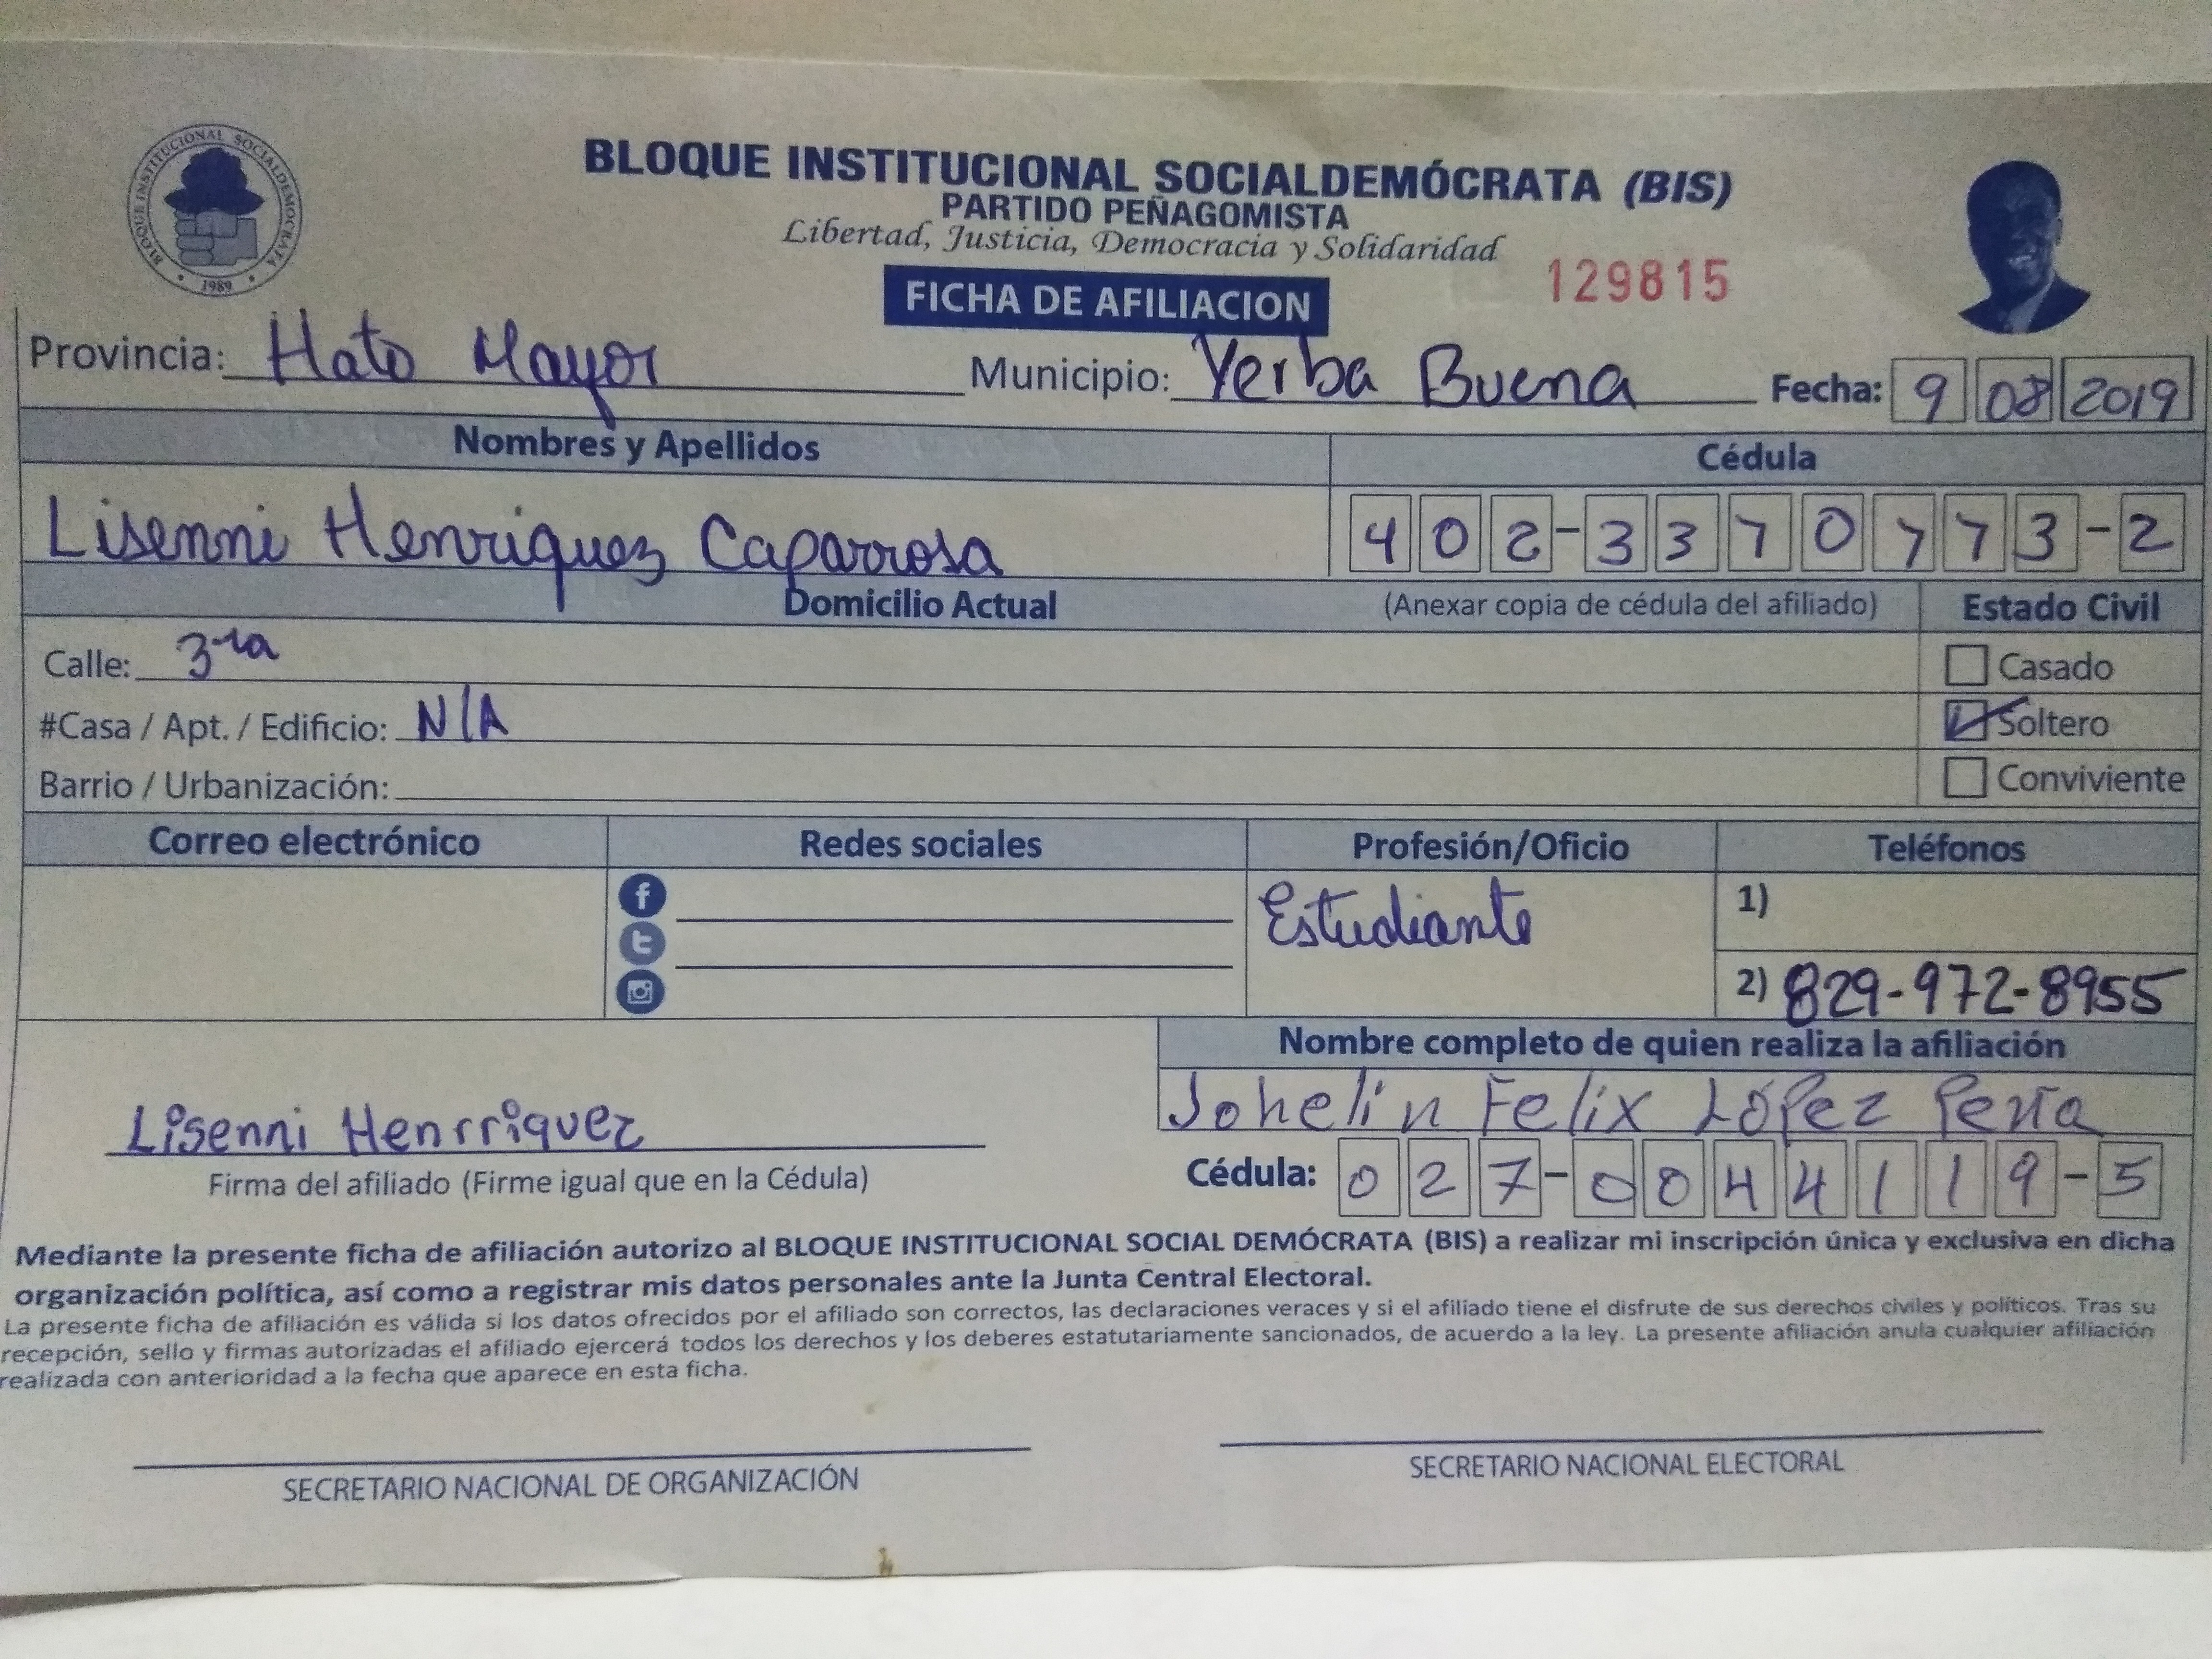 BLOQUE INSTITUCIONAL SOCIALDEMOCRATA
1989
BLOQUE INSTITUCIONAL SOCIALDEMÓCRATA (BIS)
PARTIDO PEÑAGOMISTA
Libertad, Justicia, Democracia y Solidaridad
FICHA DE AFILIACION
129815
Provincia: Hato Mayor Municipio: Yerba Buena Fecha: 9 08 2019
Nombres y Apellidos Cédula
Lisenni Henriquez Caparrosa 402-3370773-2
Domicilio Actual (Anexar copia de cédula del afiliado) Estado Civil
Calle: 3ra Casado
#Casa / Apt. / Edificio: N/A Soltero
Barrio / Urbanización: Conviviente
Correo electrónico Redes sociales Profesión/Oficio Teléfonos
Estudiante 1)
2) 829-972-8955
Nombre completo de quien realiza la afiliación
Johelin Felix López Peña
Lisenni Henrriquez
Firma del afiliado (Firme igual que en la Cédula) Cédula: 027-0044119-5
Mediante la presente ficha de afiliación autorizo al BLOQUE INSTITUCIONAL SOCIAL DEMÓCRATA (BIS) a realizar mi inscripción única y exclusiva en dicha
organización política, así como a registrar mis datos personales ante la Junta Central Electoral.
La presente ficha de afiliación es válida si los datos ofrecidos por el afiliado son correctos, las declaraciones veraces y si el afiliado tiene el disfrute de sus derechos civiles y políticos. Tras su
recepción, sello y firmas autorizadas el afiliado ejercerá todos los derechos y los deberes estatutariamente sancionados, de acuerdo a la ley. La presente afiliación anula cualquier afiliación
realizada con anterioridad a la fecha que aparece en esta ficha.
SECRETARIO NACIONAL DE ORGANIZACIÓN SECRETARIO NACIONAL ELECTORAL